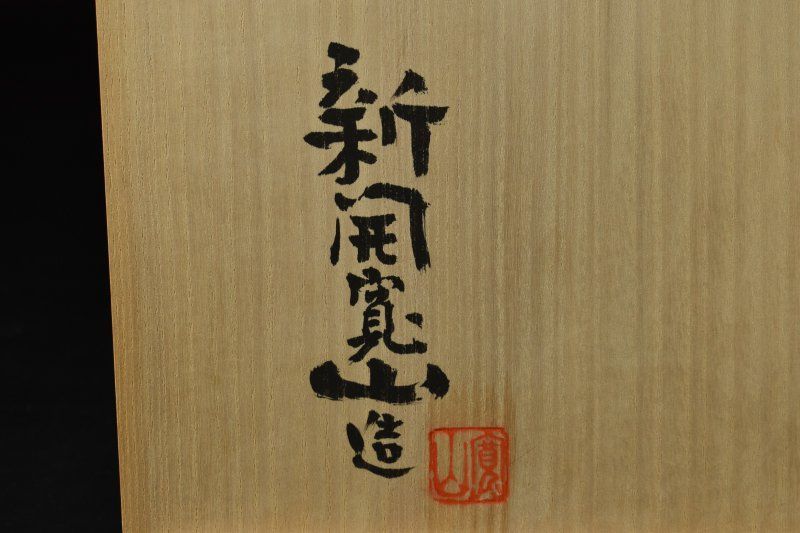 新開寛山造
寛山